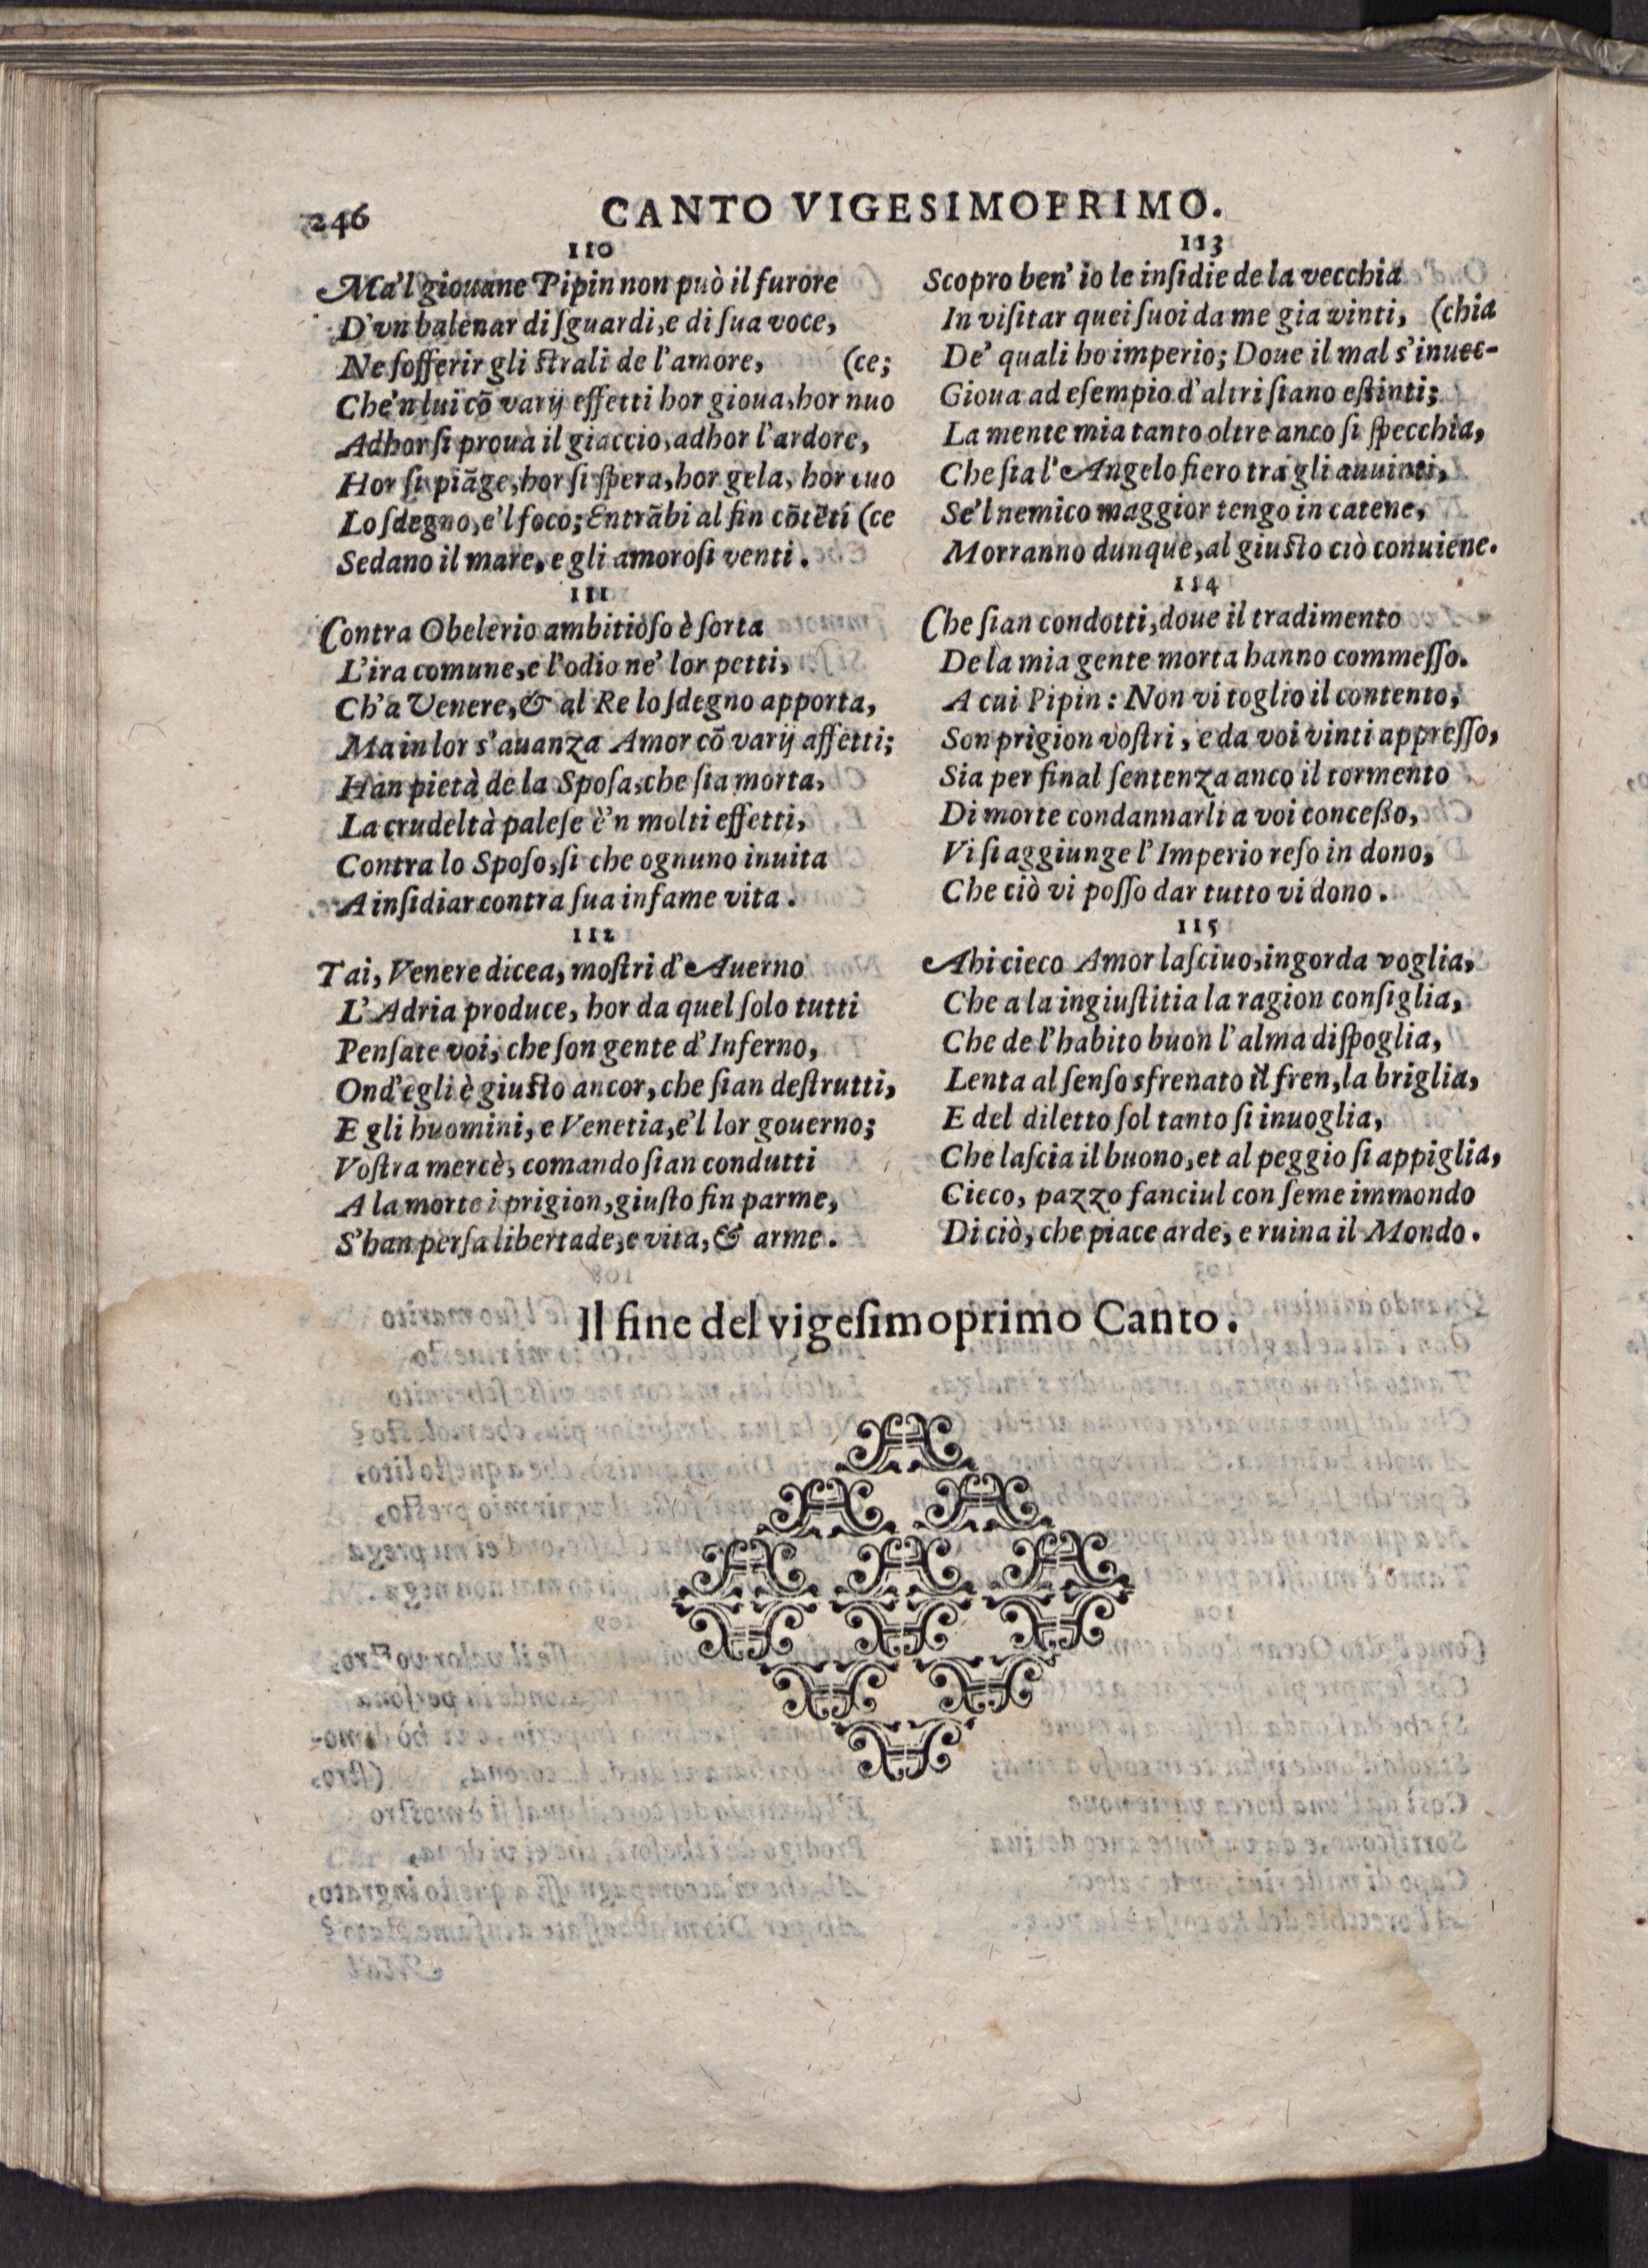 246
CANTO VIGESIMOPRIMO.
110
Ma'l giouane Pipin non può il furore
D'vn balenar di ſguardi, e di ſua voce,
Ne ſofferir gli ſtrali de l'amore, (ce;
Che'n lui cõ varij effetti hor gioua, hor nuo
Adhor ſi proua il giaccio, adhor l'ardore,
Hor ſi piãge, hor ſi ſpera, hor gela, hor cuo
Lo ſdegno, e'l foco; Entrãbi al fin cõtẽti (ce
Sedano il mare, e gli amoroſi venti.
111
Contra Obelerio ambitioſo è ſorta
L'ira comune, e l'odio ne' lor petti,
Ch'a Venere, & al Re lo ſdegno apporta,
Ma in lor s'auanza Amor cõ varij affetti;
Han pietà de la Spoſa, che ſia morta,
La crudeltà paleſe è'n molti effetti,
Contra lo Spoſo, ſi che ognuno inuita
A inſidiar contra ſua infame vita.
112
Tai, Venere dicea, moſtri d'Auerno
L'Adria produce, hor da quel ſolo tutti
Penſate voi, che ſon gente d'Inferno,
Ond'egli è giuſto ancor, che ſian deſtrutti,
E gli huomini, e Venetia, e'l lor gouerno;
Voſtra mercè, comando ſian condutti
A la morte i prigion, giuſto fin parme,
S'han perſa libertade, e vita, & arme.
113
Scopro ben' io le inſidie de la vecchia
In viſitar quei ſuoi da me gia vinti, (chia
De' quali ho imperio; Doue il mal s'inuec-
Gioua ad eſempio d'altri ſiano eſtinti;
La mente mia tanto oltre anco ſi ſpecchia,
Che ſia l'Angelo fiero tra gli auuinti,
Se'l nemico maggior tengo in catene,
Morranno dunque, al giuſto ciò conuiene.
114
Che ſian condotti, doue il tradimento
De la mia gente morta hanno commeſſo.
A cui Pipin: Non vi toglio il contento,
Son prigion voſtri, e da voi vinti appreſſo,
Sia per final ſentenza anco il tormento
Di morte condannarli a voi conceßo,
Vi ſi aggiunge l'Imperio reſo in dono,
Che ciò vi poſſo dar tutto vi dono.
115
Ahi cieco Amor laſciuo, ingorda voglia,
Che a la ingiuſtitia la ragion conſiglia,
Che de l'habito buon l'alma diſpoglia,
Lenta al ſenſo sfrenato il fren, la briglia,
E del diletto ſol tanto ſi inuoglia,
Che laſcia il buono, et al peggio ſi appiglia,
Cieco, pazzo fanciul con ſeme immondo
Di ciò, che piace arde, e ruina il Mondo.
Il fine del vigeſimoprimo Canto.